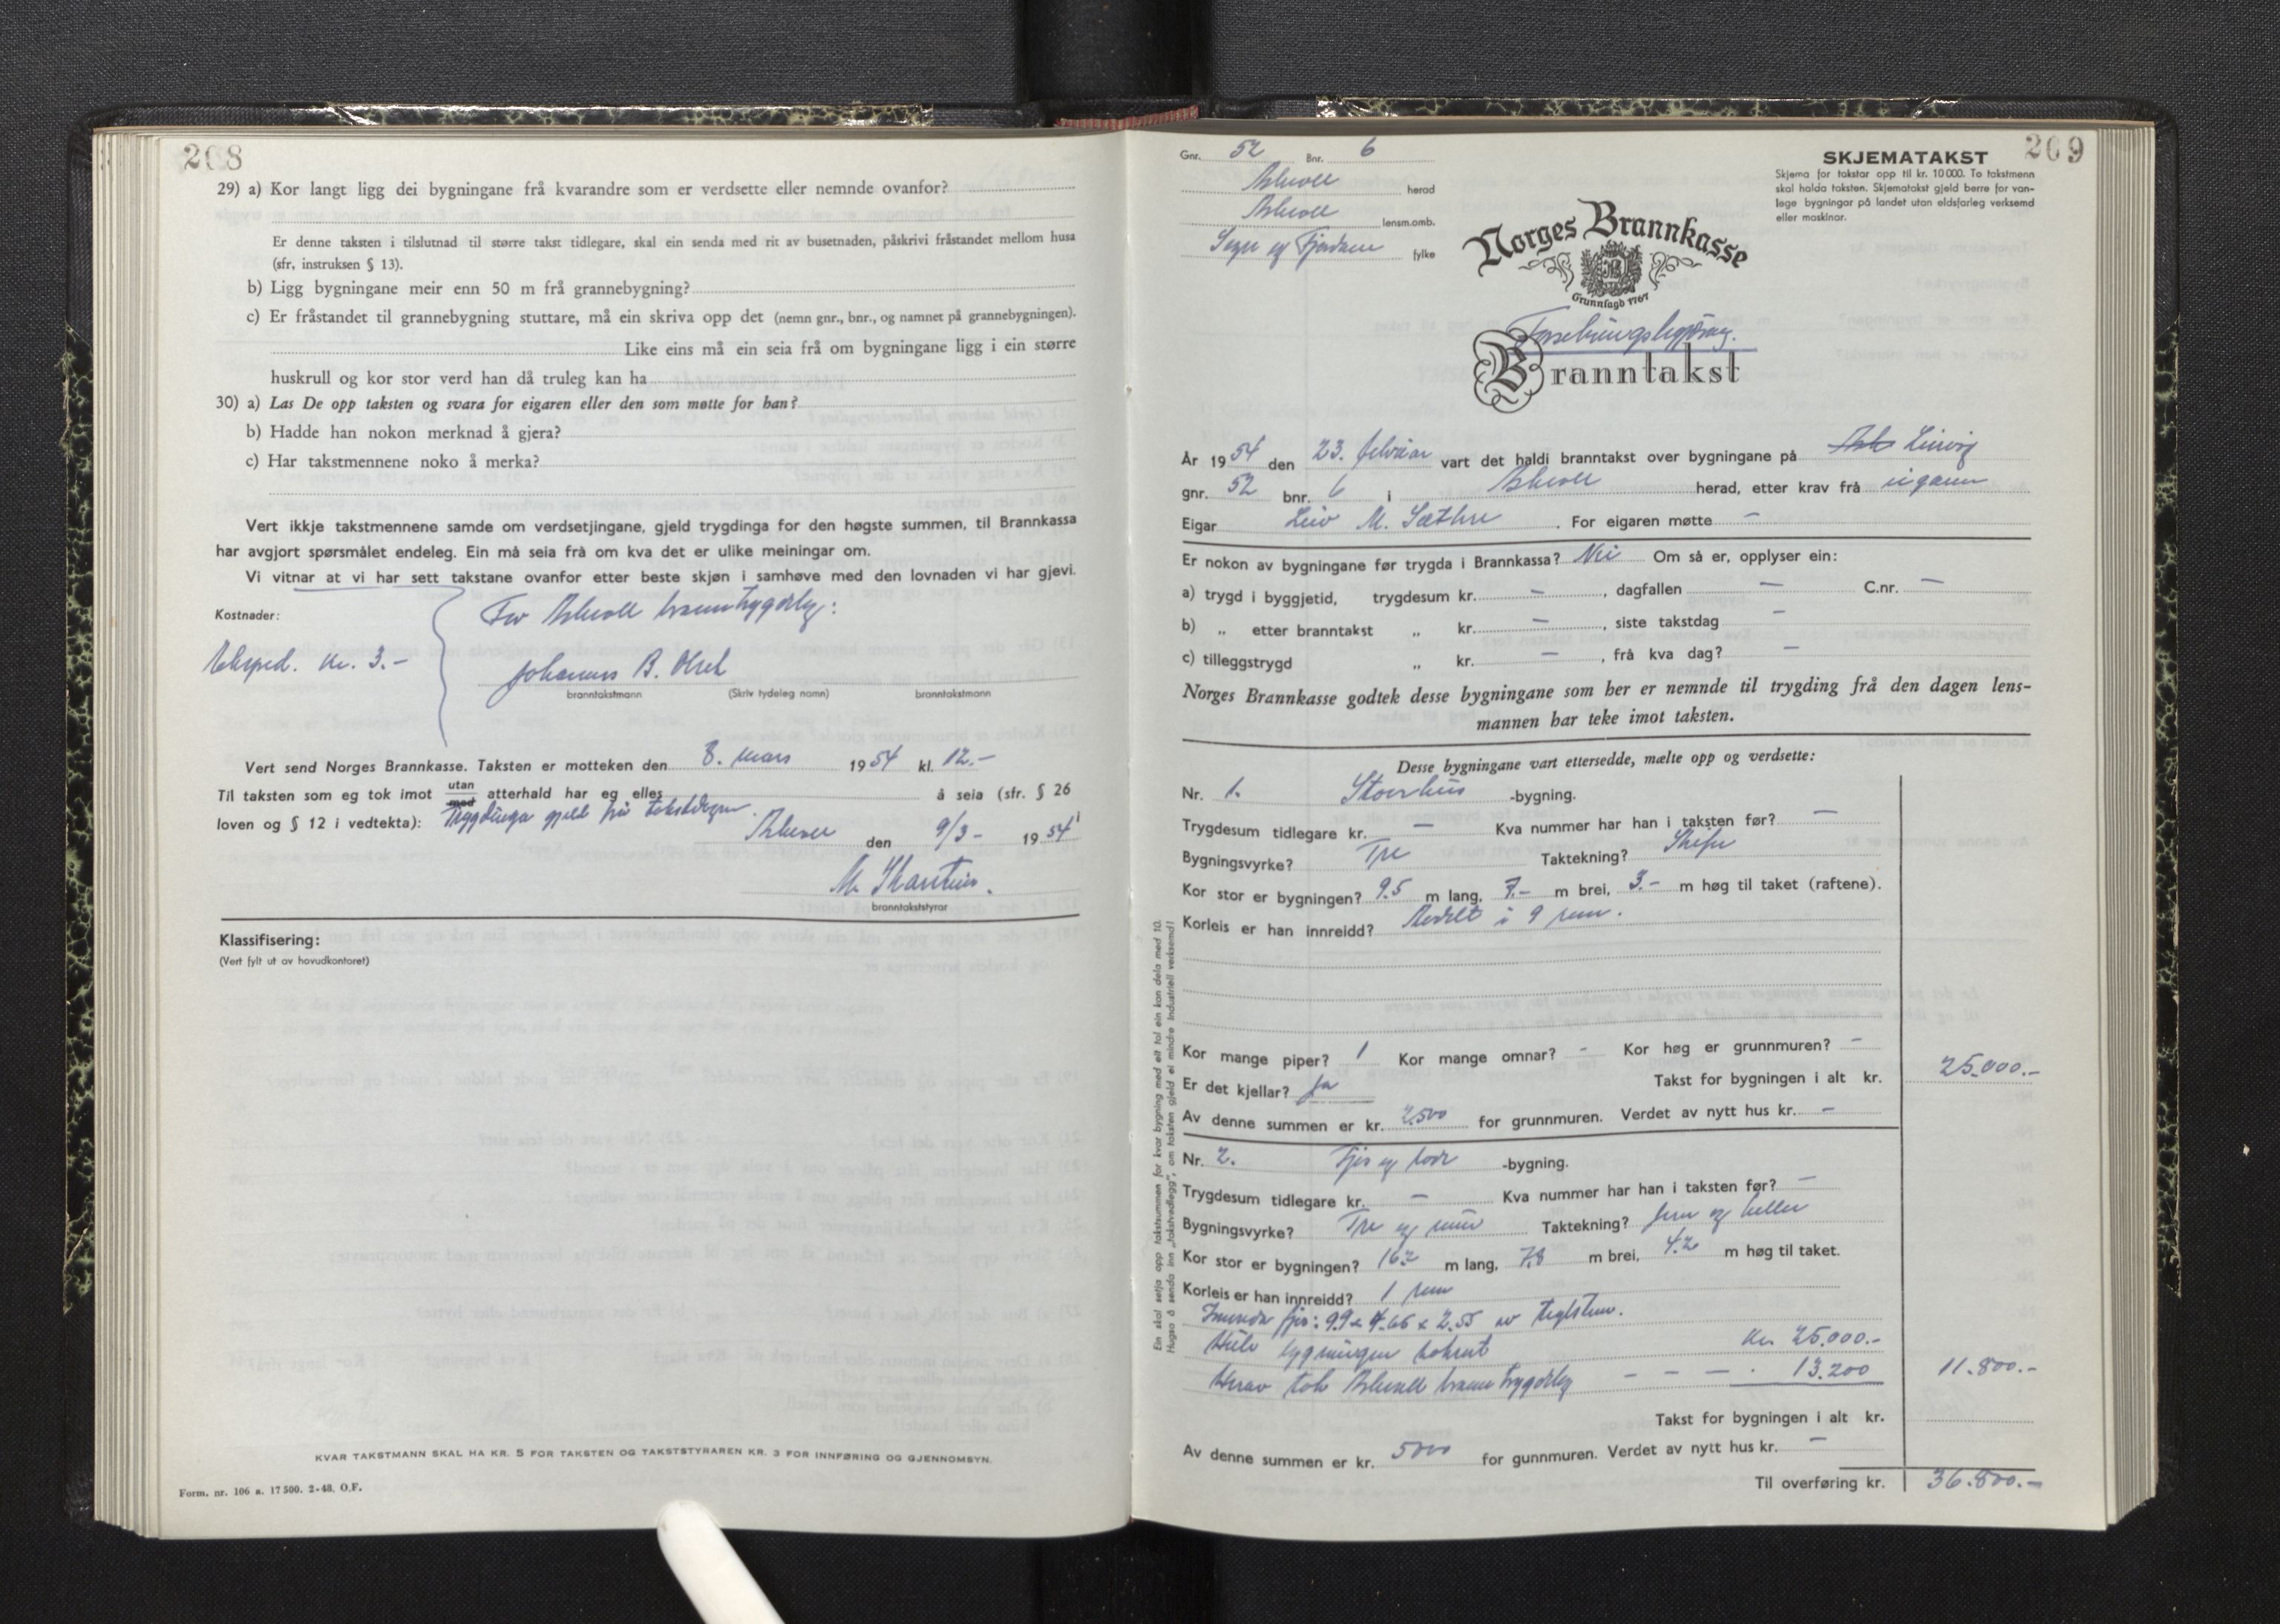 208
29) a) Kor langt ligg dei bygningane frå kvarandre som er verdsette eller nemnde ovanfor?
Er denne taksten i tilslutnad til større takst tidlegare, skal ein senda med rit av busetnaden, påskrivi fråstandet mellom husa
(sfr, instruksen § 13).
b) Ligg bygningane meir enn 50 m frå grannebygning?
c) Er fråstandet til grannebygning stuttare, må ein skriva opp det (nemn gnr., bnr., og namnet på grannebygningen).
Like eins må ein seia frå om bygningane ligg i ein større
huskrull og kor stor verd han då truleg kan ha
30) a) Las De opp taksten og svara for eigaren eller den som møtte for han?
b) Hadde han nokon merknad å gjera?
c) Har takstmennene noko å merka?
Vert ikkje takstmennene samde om verdsetjingane, gjeld trygdinga for den høgste summen, til Brannkassa
har avgjort spørsmålet endeleg. Ein må seia frå om kva det er ulike meiningar om.
Vi vitnar at vi har sett takstane ovanfor etter beste skjøn i samhøve med den lovnaden vi har gjevi.
Kostnader:
For Askvoll branntrygdelag:
Eksped. kr. 3.-
Johannes B. Olset
branntakstmann (Skriv tydeleg namn) branntakstmann
Vert send Norges Brannkasse. Taksten er motteken den 8. mars 1954 kl. 12.-
Til taksten som eg tok imot utan med atterhald har eg elles å seia (sfr. § 26
loven og § 12 i vedtekta): Trygdinga gjeld frå takstdagen.
Askvoll den 9/3- 1954
M. Skarstein.
branntakststyrar
Klassifisering:
(Vert fylt ut av hovudkontoret)
KVAR TAKSTMANN SKAL HA KR. 5 FOR TAKSTEN OG TAKSTSTYRAREN KR. 3 FOR INNFØRING OG GJENNOMSYN.
Form. nr. 106 a. 17500. 2-48. O.F.
209
Gnr. 52 Bnr. 6
Askvoll herad
Askvoll lensm.omb.
Sogn og Fjordane fylke
SKJEMATAKST
Skjema for takstar opp til kr. 10000. To takstmenn
skal halda taksten. Skjematakst gjeld berre for van-
lege bygningar på landet utan eldsfarleg verksemd
eller maskinar.
Norges Brannkasse
Grunnlagd 1767
Branntakst
År 1954 den 23. februar vart det haldi branntakst over bygningane på
gnr. 52 bnr. 6 i Askvoll herad, etter krav frå eigaren
Eigar Leiv M. Sæthre . For eigaren møtte -
Er nokon av bygningane før trygda i Brannkassa? Nei Om så er, opplyser ein:
a) trygd i byggjetid, trygdesum kr. - , dagfallen - C.nr. -
b) „ etter branntakst „ kr. - , siste takstdag -
c) tilleggstrygd „ kr. - , frå kva dag? -
Norges Brannkasse godtek desse bygningane som her er nemnde til trygding frå den dagen lens-
mannen har teke imot taksten.
Desse bygningane vart ettersedde, mælte opp og verdsette:
Nr. 1. Stovehus -bygning.
Trygdesum tidlegare kr. - Kva nummer har han i taksten før? -
Bygningsvyrke? Tre Taktekning? Skifer
Kor stor er bygningen? 9.5 m lang, 7.- m brei, 3.- m høg til taket (raftene).
Korleis er han innreidd? Avdelt i 9 rum.
Kor mange piper? 1 Kor mange omnar? - Kor høg er grunnmuren? -
Er det kjellar? Ja Takst for bygningen i alt kr. 25.000.-
Av denne summen er kr. 2500 for grunnmuren. Verdet av nytt hus kr. -
Nr. 2. Fjøs og løde -bygning.
Trygdesum tidlegare kr. - Kva nummer har han i taksten før? -
Bygningsvyrke? Tre og mur Taktekning? Jern og heller
Kor stor er bygningen? 16.2 m lang, 7.8 m brei, 4.2 m høg til taket.
Korleis er han innreidd? 1 rum
Innvendig fjøs: 9.9 x 4.65 x 2.55 av teglstein.
Heile bygningen takert kr. 25.000.-
Herav tek Askvoll branntrygdelag - - - . 13.200 11.800.-
Takst for bygningen i alt kr.
Av denne summen er kr. 5000 for gunnmuren. Verdet av nytt hus kr. -
Til overføring kr. 36.800.-
Ein skal setja opp takstsummen for kvar bygning med eit tal ein kan dela med 10.
Hugsa å senda inn „takstvedlegg", om taksten gjeld ei mindre industriell verksemd!